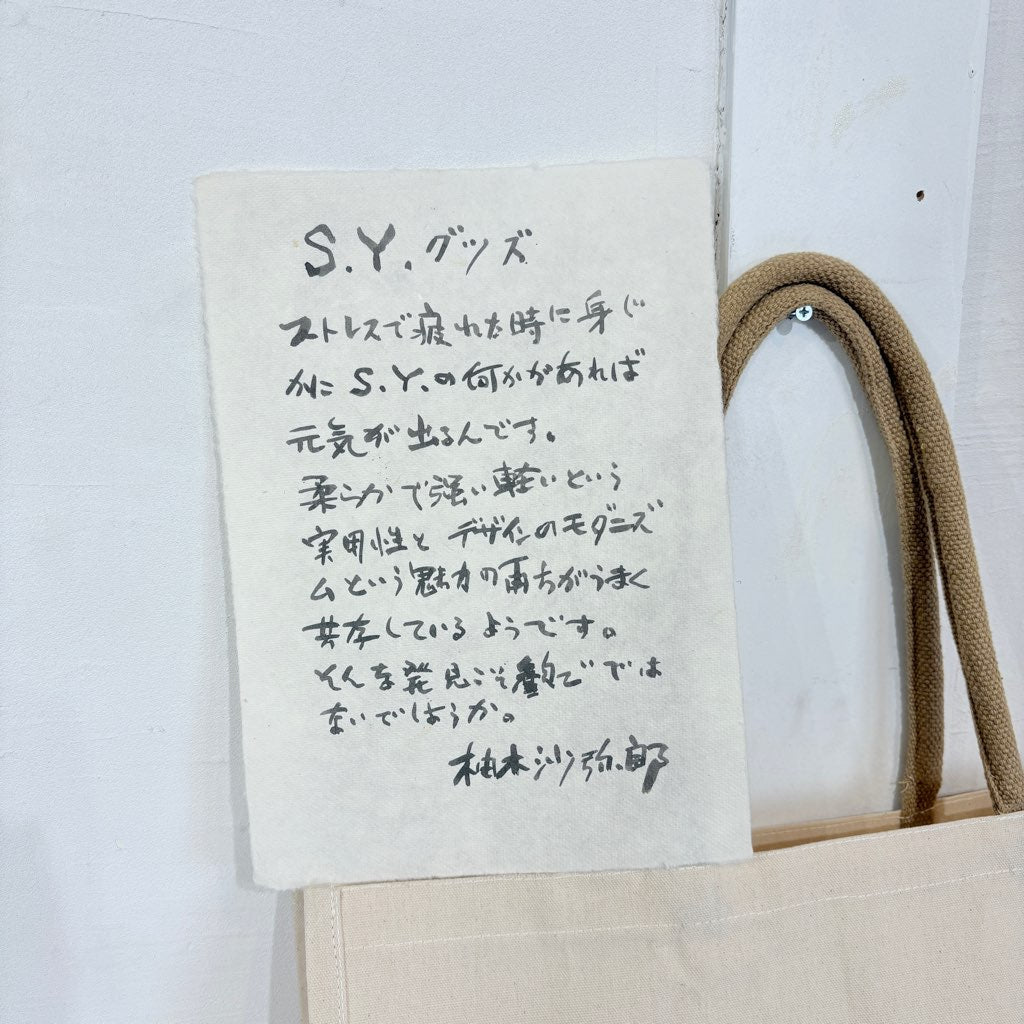 S.Y.グッズ
ストレスで疲れた時に身じ
かに S.Y.の何かがあれば
元気が出るんです。
柔らかで強い軽いという
実用性と デザインのモダニズ
ムという魅力の両方がうまく
共存しているようです。
そんな発見こそ では
ないでしょうか。
柚木沙弥郎